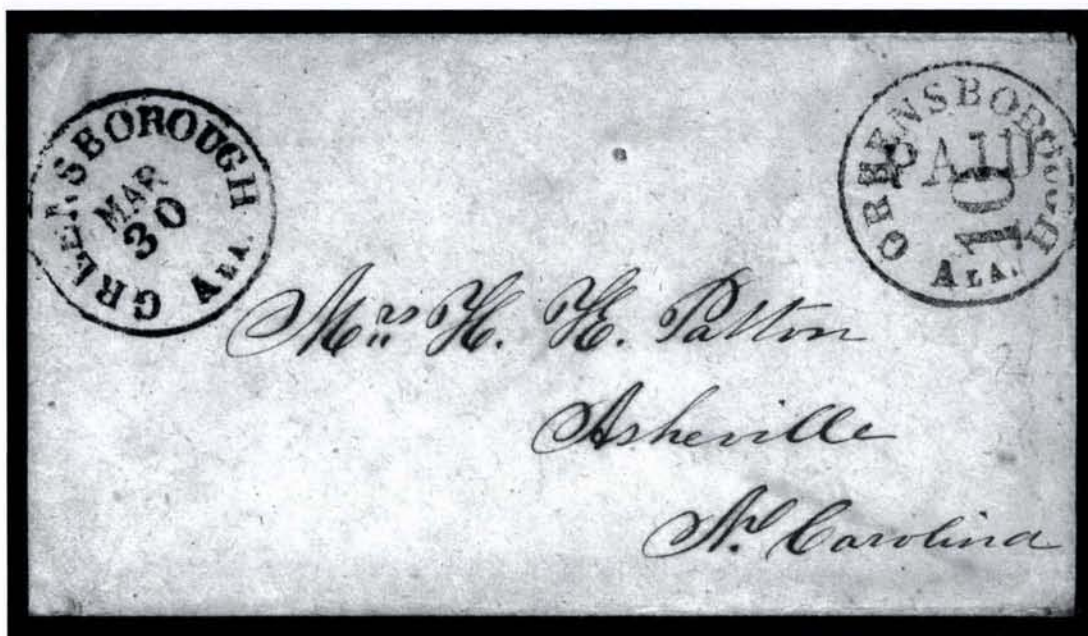 GREENSBOROUGH
MAR
30
ALA.
GREENSBOROUGH
PAID
10
ALA.
Mrs H. H. Patton
Asheville
No. Carolina